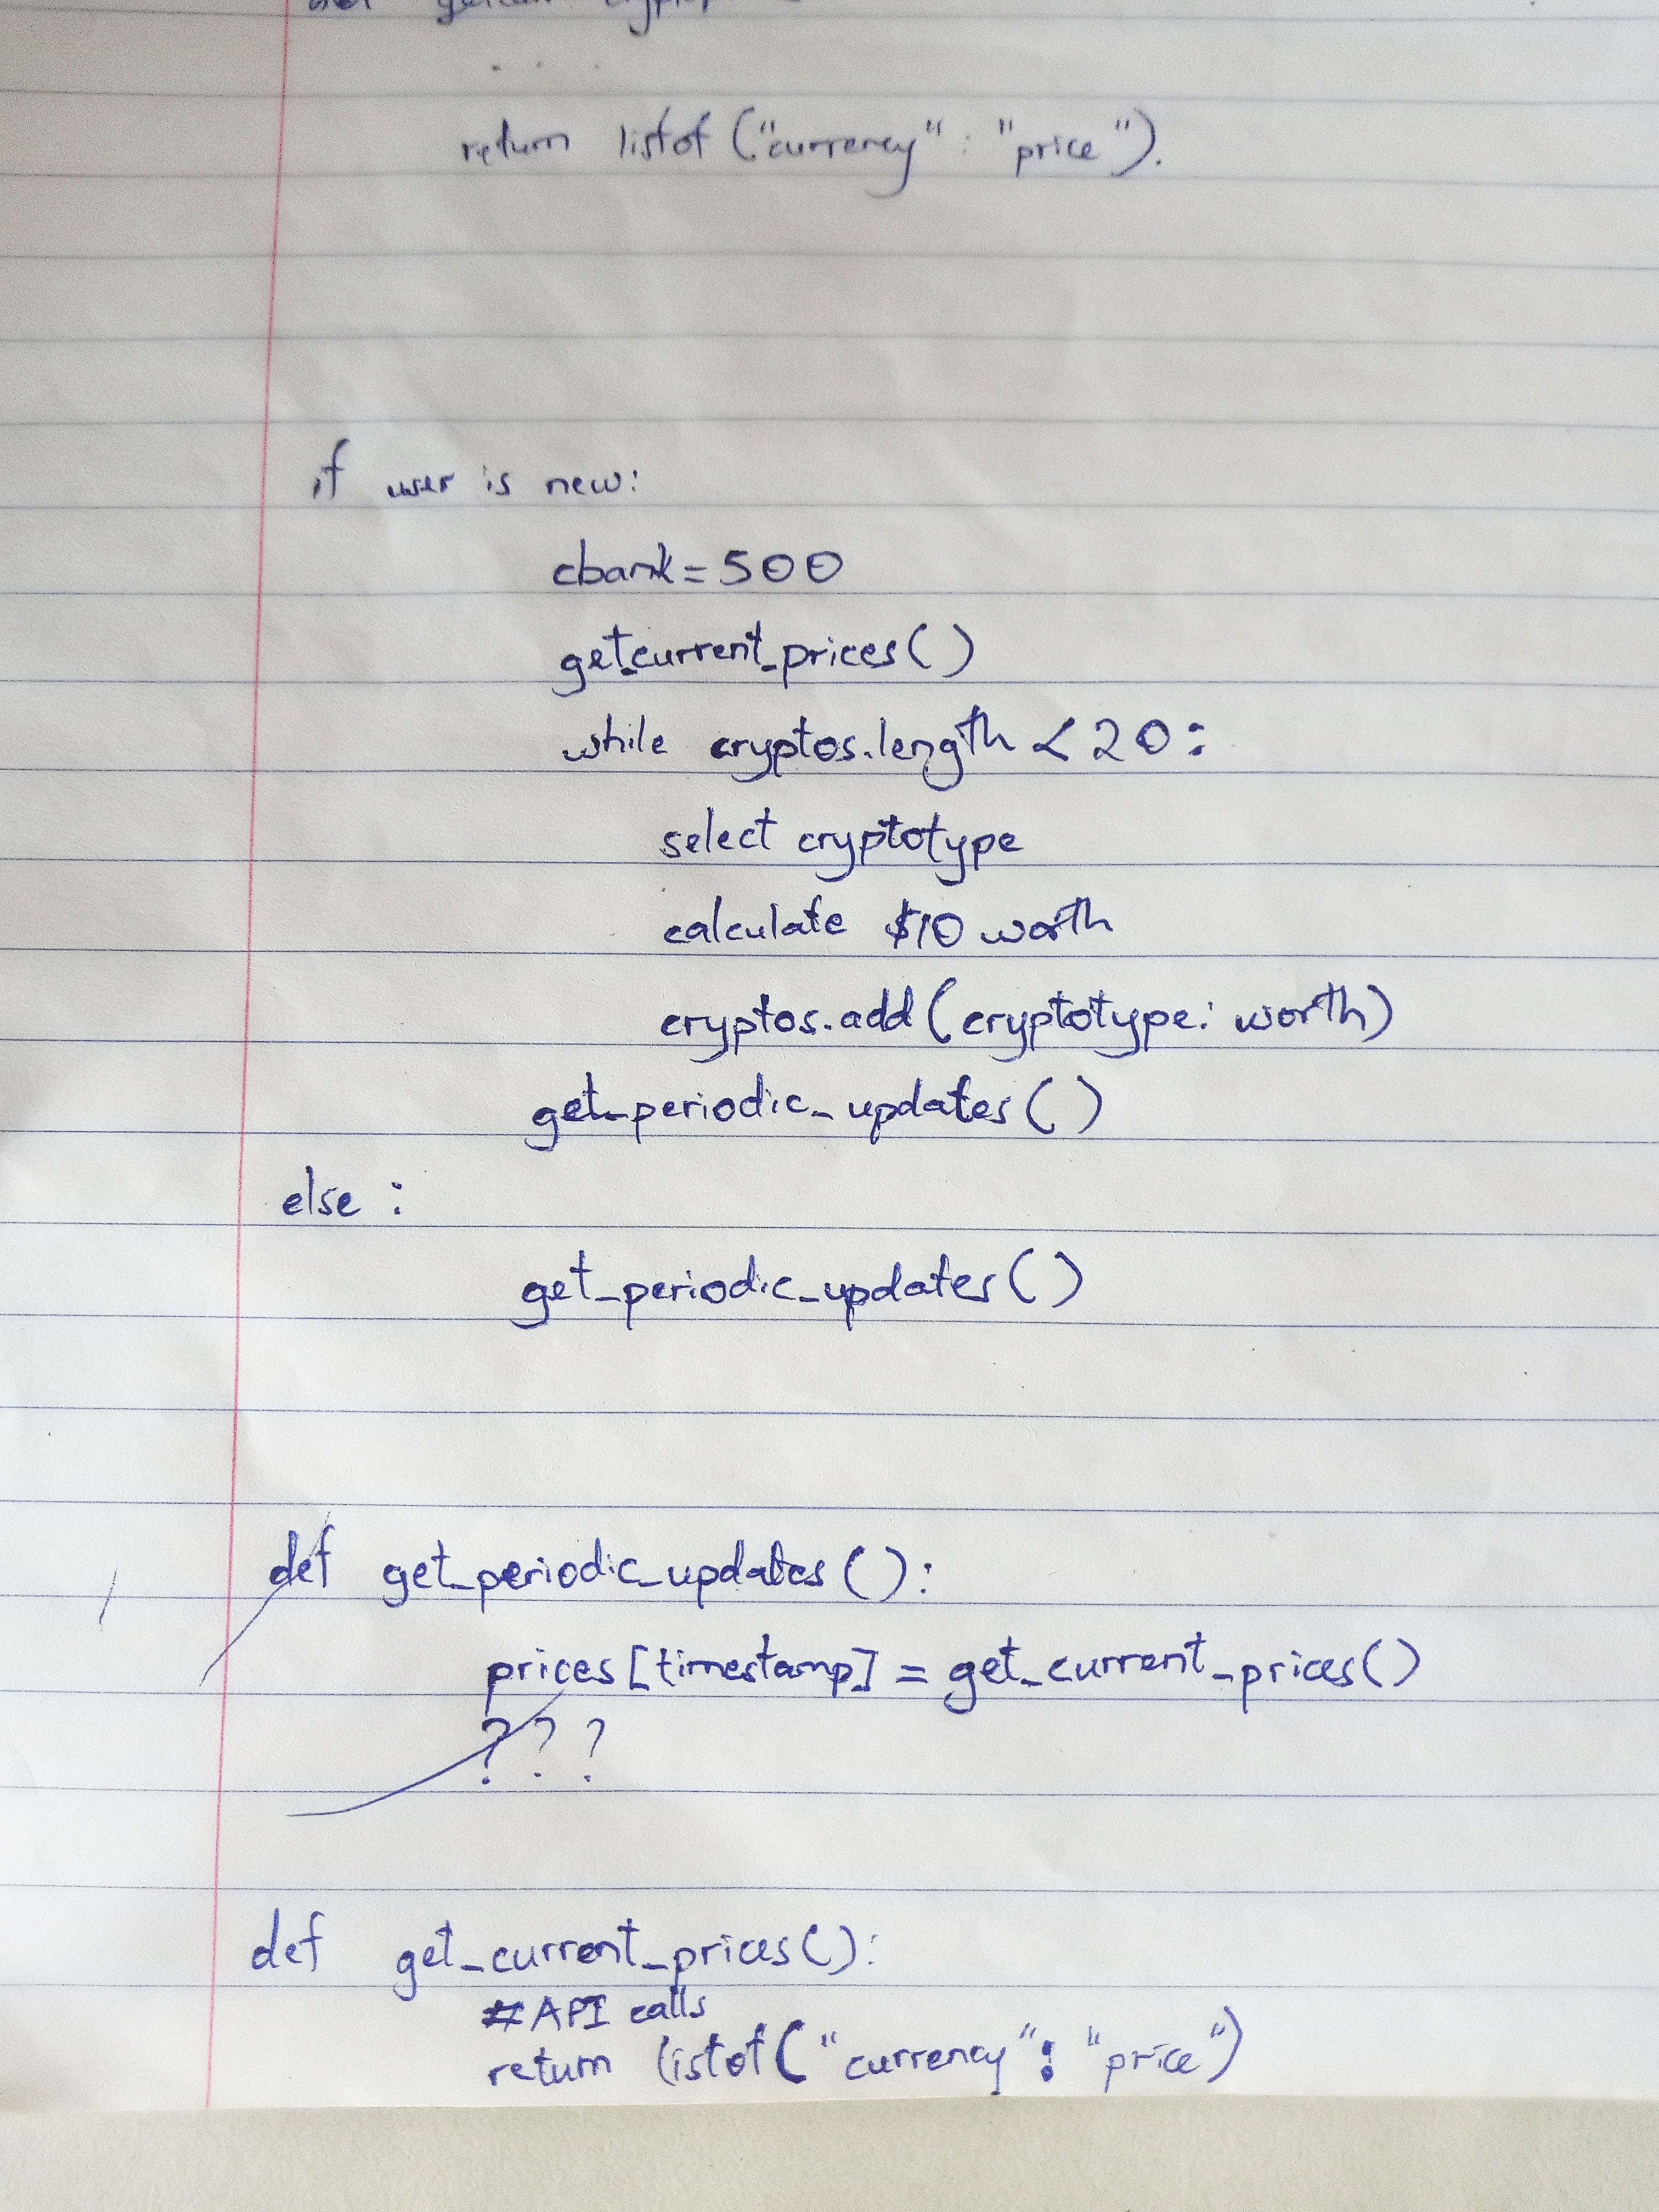 . . .
return listof ("currency" : "price").
if user is new:
cbank = 500
get_current_prices()
while cryptos.length < 20:
select cryptotype
calculate $10 worth
cryptos.add (cryptotype: worth)
get_periodic_updates()
else :
get_periodic_updates()
def get_periodic_updates():
prices[timestamp] = get_current_prices()
???
def get_current_prices():
#API calls
return listof ("currency": "price")